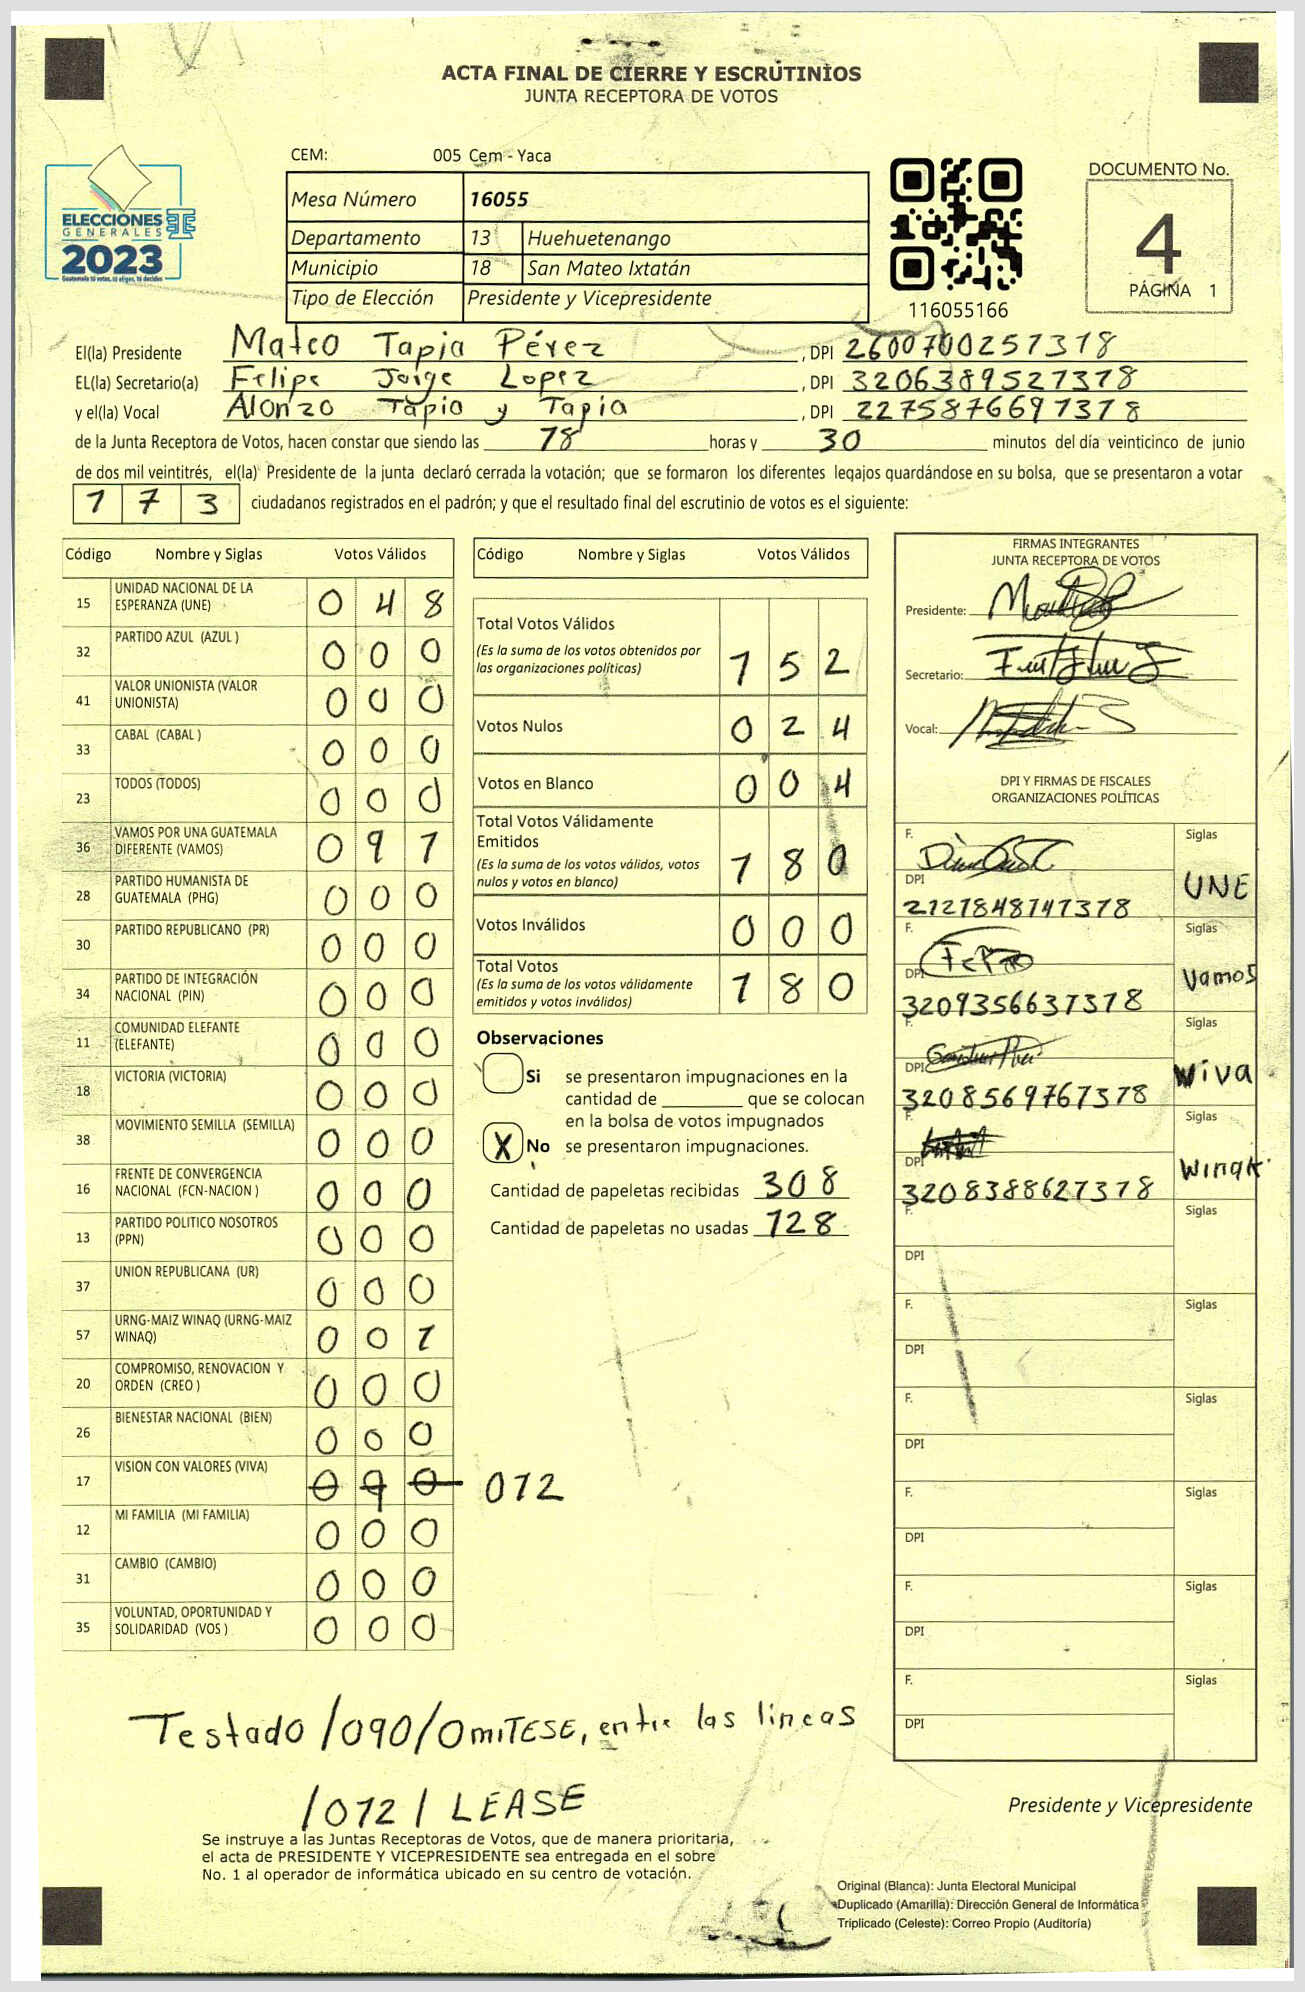 ACTA FINAL DE CIERRE Y ESCRUTINIOS
JUNTA RECEPTORA DE VOTOS
CEM: 005 Cem - Yaca
ELECCIONES
GENERALES
2023
Guatemala tú votas, tú eliges, tú decides
Mesa Número 16055
Departamento 13 Huehuetenango
Municipio 18 San Mateo Ixtatán
Tipo de Elección Presidente y Vicepresidente
116055166
DOCUMENTO No.
4
PÁGINA 1
El(la) Presidente Mateo Tapia Pérez , DPI 2600700251318
EL(la) Secretario(a) Felipe Jorge Lopez , DPI 3206389521318
y el(la) Vocal Alonzo Tapia y Tapia , DPI 2275876691318
de la Junta Receptora de Votos, hacen constar que siendo las 18 horas y 30 minutos del día veinticinco de junio
de dos mil veintitrés, el(la) Presidente de la junta declaró cerrada la votación; que se formaron los diferentes legajos quardándose en su bolsa, que se presentaron a votar
173 ciudadanos registrados en el padrón; y que el resultado final del escrutinio de votos es el siguiente:
Código Nombre y Siglas Votos Válidos
15 UNIDAD NACIONAL DE LA ESPERANZA (UNE) 0 4 8
32 PARTIDO AZUL (AZUL ) 0 0 0
41 VALOR UNIONISTA (VALOR UNIONISTA) 0 0 0
33 CABAL (CABAL ) 0 0 0
23 TODOS (TODOS) 0 0 0
36 VAMOS POR UNA GUATEMALA DIFERENTE (VAMOS) 0 9 1
28 PARTIDO HUMANISTA DE GUATEMALA (PHG) 0 0 0
30 PARTIDO REPUBLICANO (PR) 0 0 0
34 PARTIDO DE INTEGRACIÓN NACIONAL (PIN) 0 0 0
11 COMUNIDAD ELEFANTE (ELEFANTE) 0 0 0
18 VICTORIA (VICTORIA) 0 0 0
38 MOVIMIENTO SEMILLA (SEMILLA) 0 0 0
16 FRENTE DE CONVERGENCIA NACIONAL (FCN-NACION ) 0 0 0
13 PARTIDO POLITICO NOSOTROS (PPN) 0 0 0
37 UNION REPUBLICANA (UR) 0 0 0
57 URNG-MAIZ WINAQ (URNG-MAIZ WINAQ) 0 0 1
20 COMPROMISO, RENOVACION Y ORDEN (CREO ) 0 0 0
26 BIENESTAR NACIONAL (BIEN) 0 0 0
17 VISION CON VALORES (VIVA) 0 9 0 012
12 MI FAMILIA (MI FAMILIA) 0 0 0
31 CAMBIO (CAMBIO) 0 0 0
35 VOLUNTAD, OPORTUNIDAD Y SOLIDARIDAD (VOS ) 0 0 0
Código Nombre y Siglas Votos Válidos
Total Votos Válidos
(Es la suma de los votos obtenidos por
las organizaciones políticas) 1 5 2
Votos Nulos 0 2 4
Votos en Blanco 0 0 4
Total Votos Válidamente
Emitidos
(Es la suma de los votos válidos, votos
nulos y votos en blanco) 1 8 0
Votos Inválidos 0 0 0
Total Votos
(Es la suma de los votos válidamente
emitidos y votos inválidos) 1 8 0
Observaciones
Si se presentaron impugnaciones en la
cantidad de ________ que se colocan
en la bolsa de votos impugnados
X No se presentaron impugnaciones.
Cantidad de papeletas recibidas 308
Cantidad de papeletas no usadas 128
FIRMAS INTEGRANTES
JUNTA RECEPTORA DE VOTOS
Presidente:
Secretario:
Vocal:
DPI Y FIRMAS DE FISCALES
ORGANIZACIONES POLÍTICAS
F. Siglas
DPI UNE
2121848141318
F. Siglas
DPI Vamos
3209356631318
F. Siglas
DPI Wiva
3208569761318
F. Siglas
DPI Winak
3208388621318
F. Siglas
DPI
F. Siglas
DPI
F. Siglas
DPI
F. Siglas
DPI
F. Siglas
DPI
F. Siglas
DPI
Testado /090/OmITESE, entre las lineas
/012/ LEASE
Presidente y Vicepresidente
Se instruye a las Juntas Receptoras de Votos, que de manera prioritaria,
el acta de PRESIDENTE Y VICEPRESIDENTE sea entregada en el sobre
No. 1 al operador de informática ubicado en su centro de votación.
Original (Blanca): Junta Electoral Municipal
Duplicado (Amarilla): Dirección General de Informática
Triplicado (Celeste): Correo Propio (Auditoría)